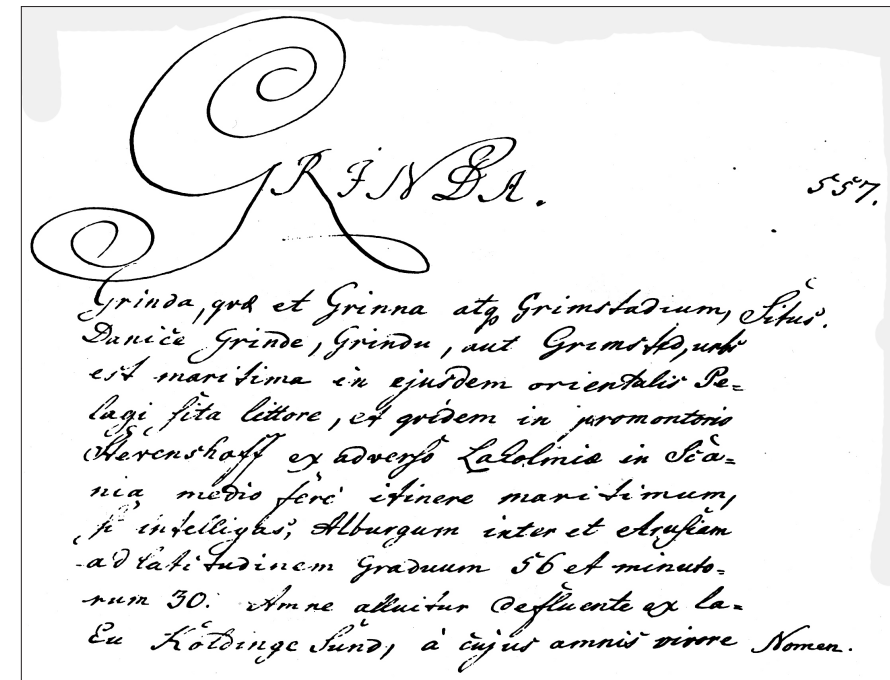 GRINDA.
557.
Grinda, qvæ et Grinna atq Grimstadium, Situs.
Danice Grinde, Grindu, aut Grimsted, urbs
est maritima in ejusdem orientalis Pe=
lagi sita littore, et qvidem in promontorio
Hevenshoff ex adverso Laholmiæ in Sca=
nia medio fere itinere maritimum,
si intelligas, Alburgum inter et Arusiam
ad latitudinem Graduum 56 et minuto=
rum 30. Amne alluitur defluente ex la=
cu Koldinge Sund, à cujus amnis virore Nomen.